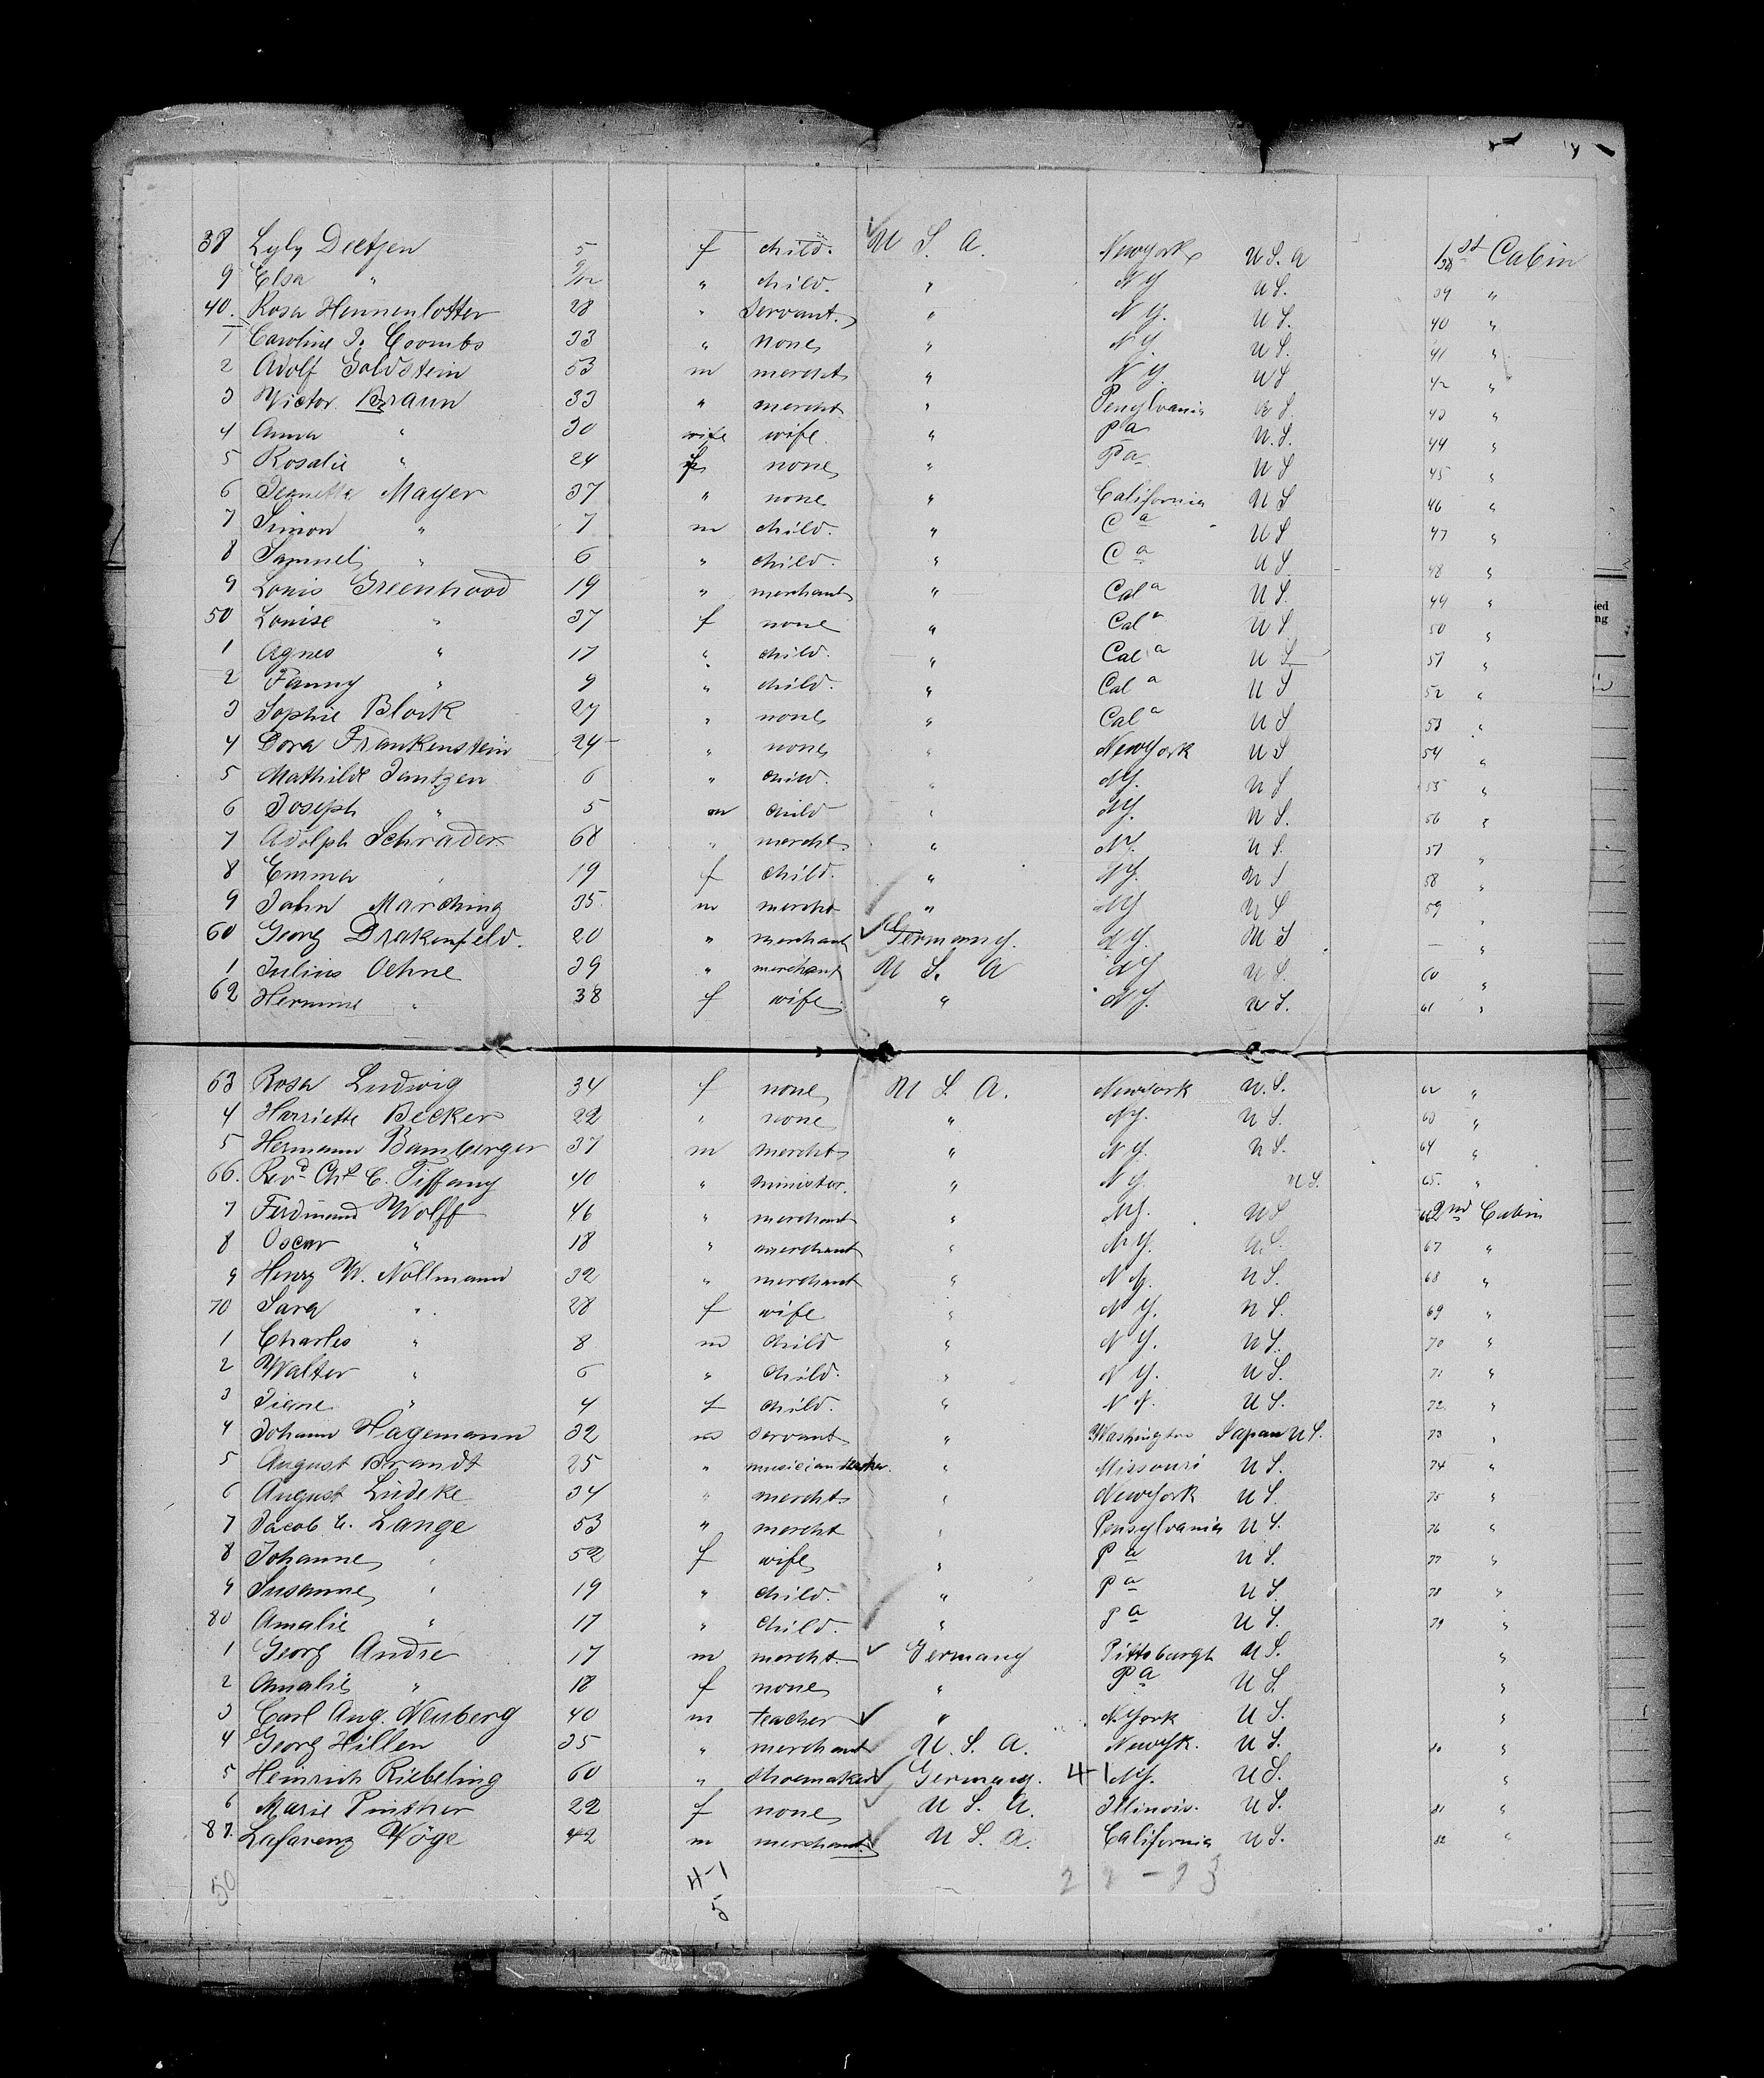 38 Lyly Deetjen 5 f child. U S. A. Newyork U S. A 38 1st Cabin
9 Elsa " 9/12 " child. " N Y U S. 39 "
40. Rosa Hennenlotter 28 " Servant. " N Y. U S. 40 "
1 Caroline J. Coombs 33 " none " N Y. U S. 41 "
2 Adolf Goldstein 53 m mercht " N Y. U S 42 "
3 Victor Braun 33 " mercht " Pensylvania U S. 43 "
4 Anna " 30 wife wife. " Pa U. S. 44 "
5 Rosalie " 24 f none " Pa U S 45 "
6 Jeanetta Mayer 37 " none " California U S 46 "
7 Simon " 7 m child. " Ca U S 47 "
8 Samuel " 6 " child. " Ca U S 48 "
9 Louis Greenhood 19 " merchant " Cala U S. 49 "
50 Louise " 37 f none " Cala U S 50 "
1 Agnes " 17 " child. " Cala U S 51 "
2 Fanny " 9 " child. " Cala U S 52 "
3 Sophie Block 27 " none " Cala U S 53 "
4 Cora Frankenstein 24 " none " NewYork U S 54 "
5 Mathilde Jantzen 6 " child. " NY. U S 55 "
6 Joseph " 5 m child " NY. U S. 56 "
7 Adolph Schrader 68 " mercht " NY. U S. 57 "
8 Emma " 19 f child. " NY. U S 58 "
9 John Marching 35 m mercht " NY U S 59 "
60 Georg Drakenfeld. 20 " merchant Germany. NY. U S "
1 Julius Oehne 39 " merchant U S. A NY U S. 60 "
62 Hermine " 38 f wife " NY. U S. 61 "
63 Rosa Ludwig 34 f none U S. A. Newyork U. S. 62 "
4 Harriette Becker 22 " none " NY. U S. 63 "
5 Hermann Bamberger 37 m mercht " N Y. U S. 64 "
66. Revd Chs C. Tiffany 40 " minister. " N Y. U S. 65. "
7 Ferdinand Wolff 46 " merchant " NY. U S 66 2nd Cabin
8 Oscar " 18 " merchant " N Y. U. S. 67 "
9 Henry W. Nollmann 32 " merchant " N Y. U S. 68 "
70 Sara " 28 f wife " N Y. U S. 69 "
1 Charles " 8 m child " N Y. U S. 70 "
2 Walter " 6 " child. " N Y. U S. 71 "
3 " 4 f child. " N Y. U S. 72. "
4 Johann Hagemann 32 m servant " Washington Japan U S. 73 "
5 August Brandt 25 " musician teacher. " Missouri U S. 74 "
6 August Lüdeke 34 " mercht " NewYork U S. 75 "
7 Jacob C. Lange 53 " mercht " Pensylvania U S. 76 "
8 Johanne " 52 f wife " Pa U S. 77 "
9 Susanne " 19 " child. " Pa U S. 78 "
80 Amalie " 17 " child. " Pa U S. 79 "
1 Georg Andre 17 m mercht Germany Pittsburgh U S. "
2 Amalie " 18 f none " Pa U S. "
3 Carl Aug. Neuberg 40 m teacher " N.York U S. "
4 Georg Hillen 35 " merchant U. S. A. NewYk. U S. 80 "
5 Heinrich Riebeling 60 " shoemaker Germany. 4-1 NY. U S. "
6 Marie Pintscher 22 f none U S. A. Illinois. U S. 81 "
87. Lafarenz Vöge 42 m merchant U S. A. California U S. 82 "
50 4-1
5